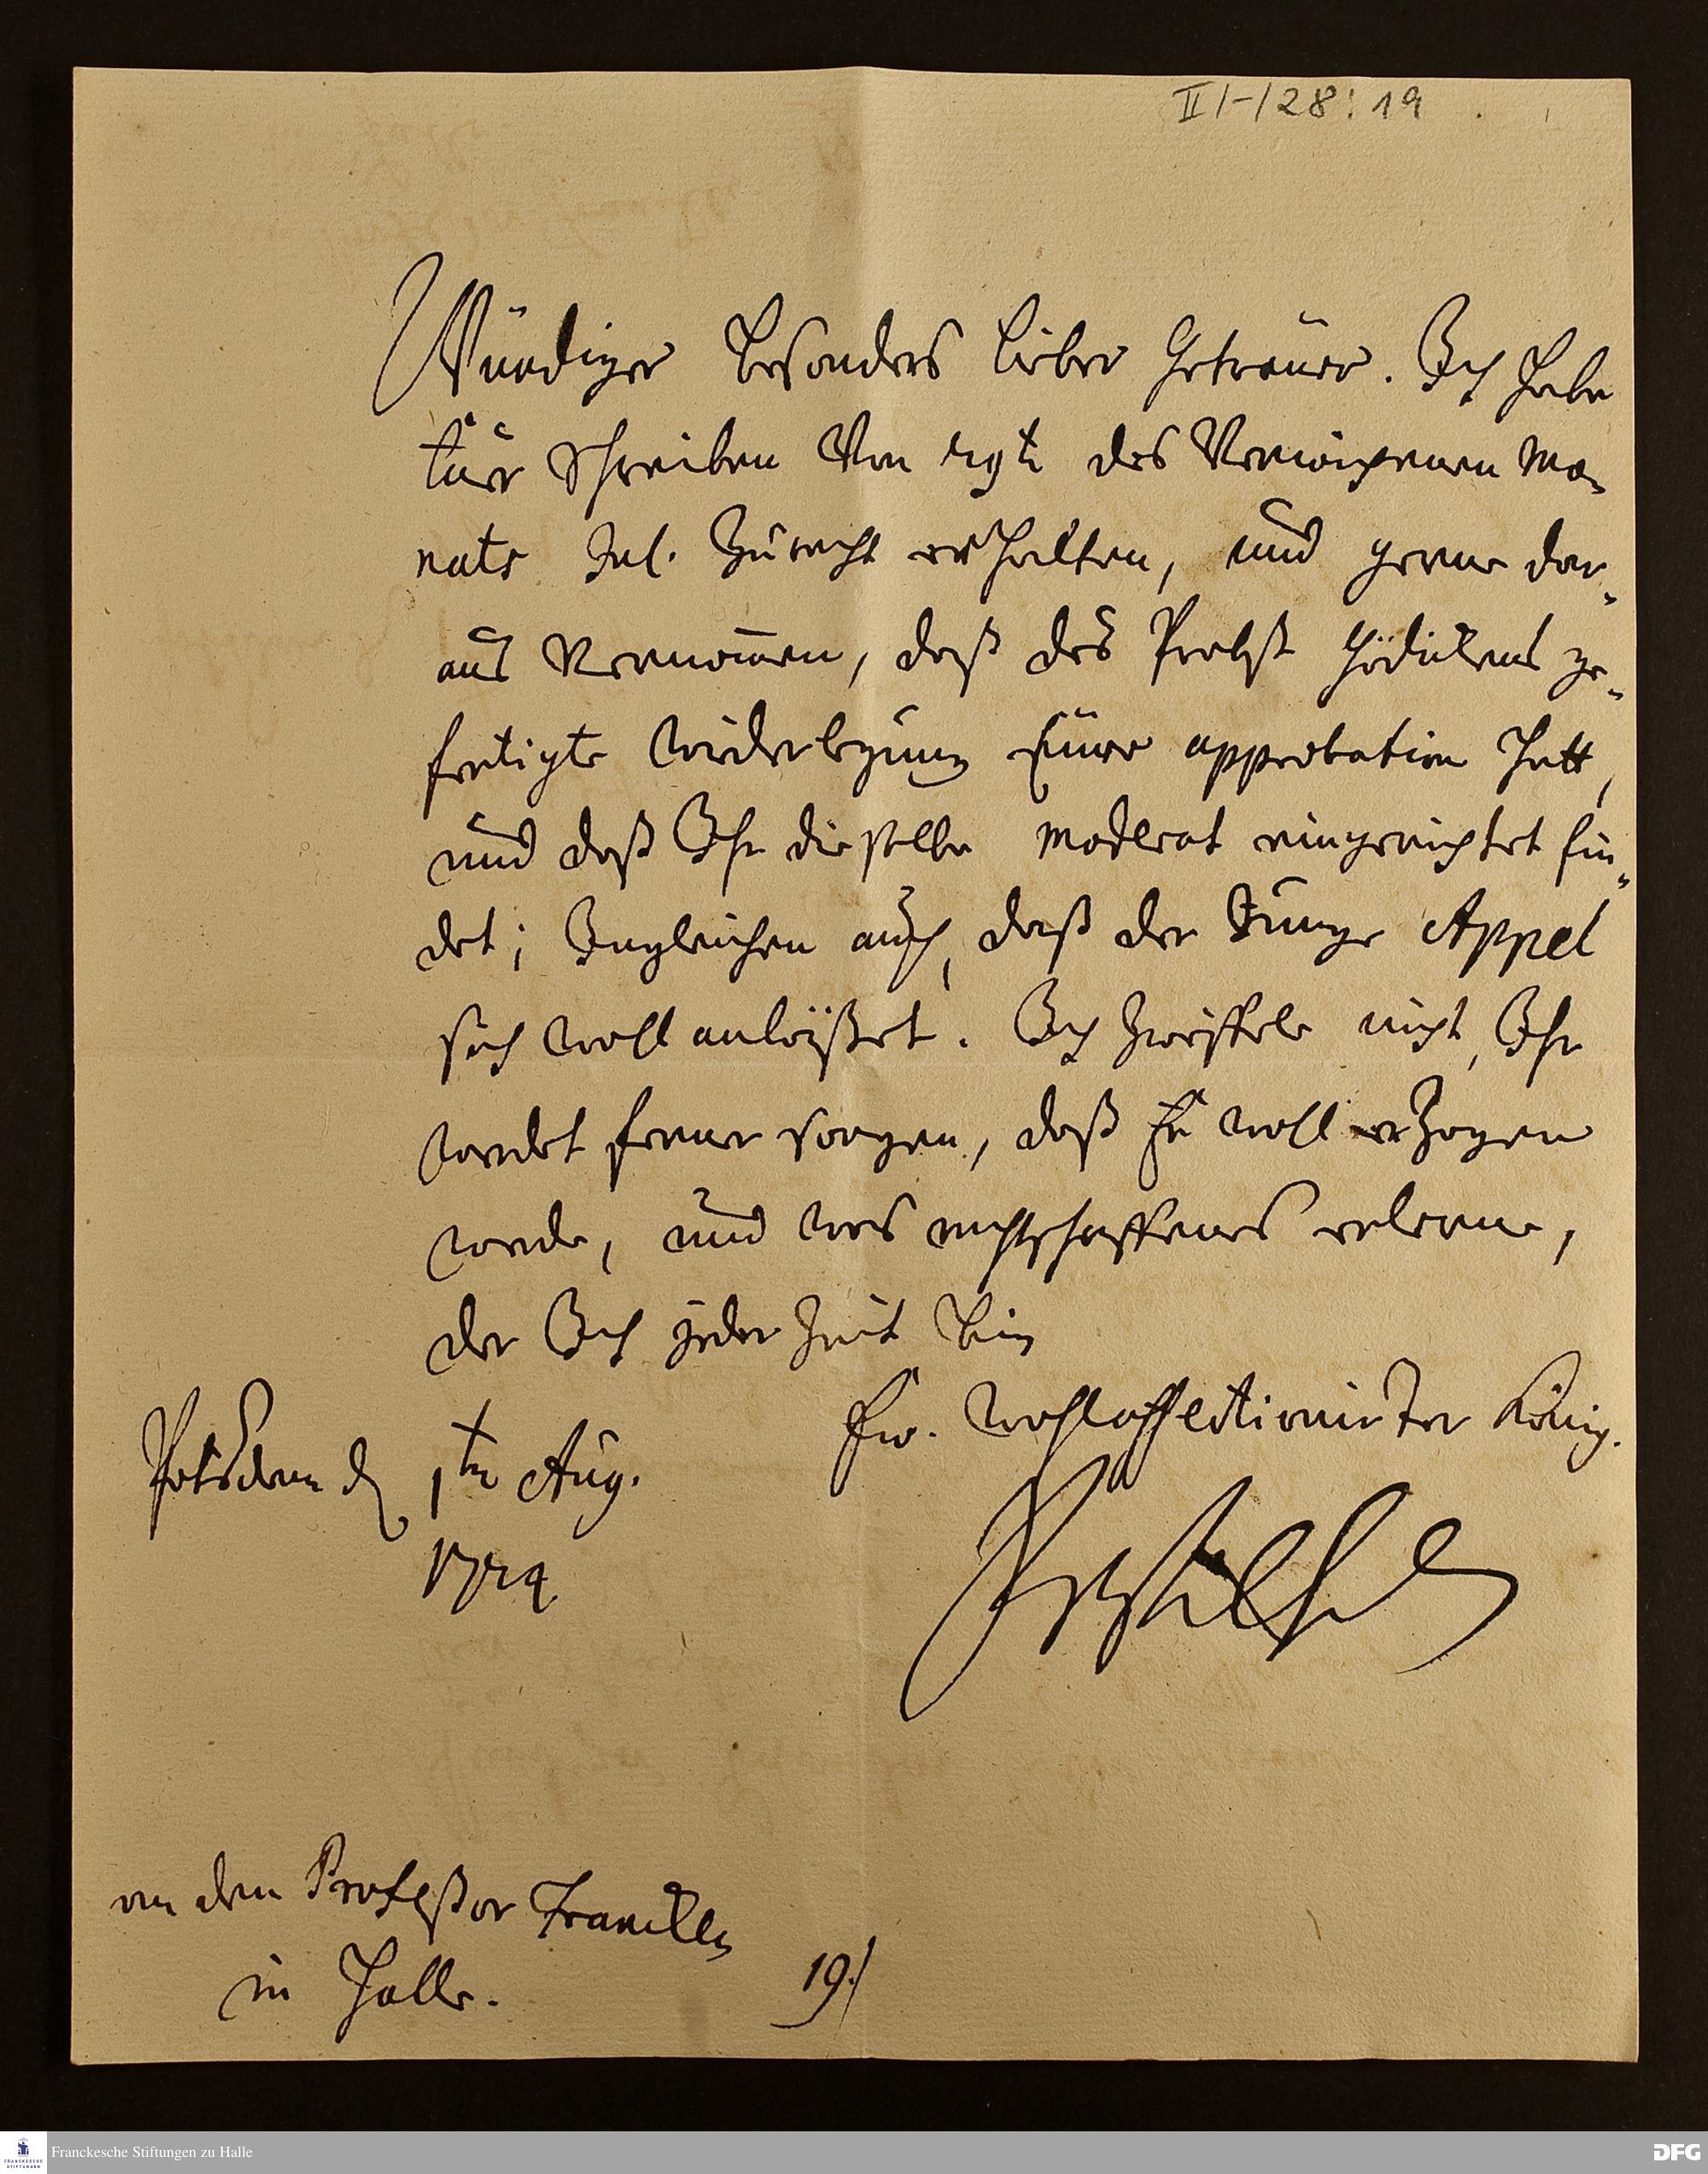 II/-/28:19
Würdiger besonders lieber Getreuer. Ich habe
Euer Schreiben von 29ten des verwichenen Mo-
nats Jul. zurecht erhalten, und gerne dar-
aus vernommen, daß des Probst Gödickens ge-
fertigte Wiederlegung Euere approbation hatt,
und daß Ihr dieselbe moderat eingerichtet fin-
det; Ingleichen auch, daß der Junge Appel
sich wohl anläßet. Ich zweiffele nicht, Ihr
werdet ferner sorgen, daß Er wohl erzogen
werde, und was rechtschaffenes erlerne,
der Ich jederzeit bin
Ew. wohlaffectionirter König.
Potsdam d 1ten Aug.
1724
FrWilhelm
an den Professor Francken
in Halle.
19./
Franckesche Stiftungen zu Halle
DFG